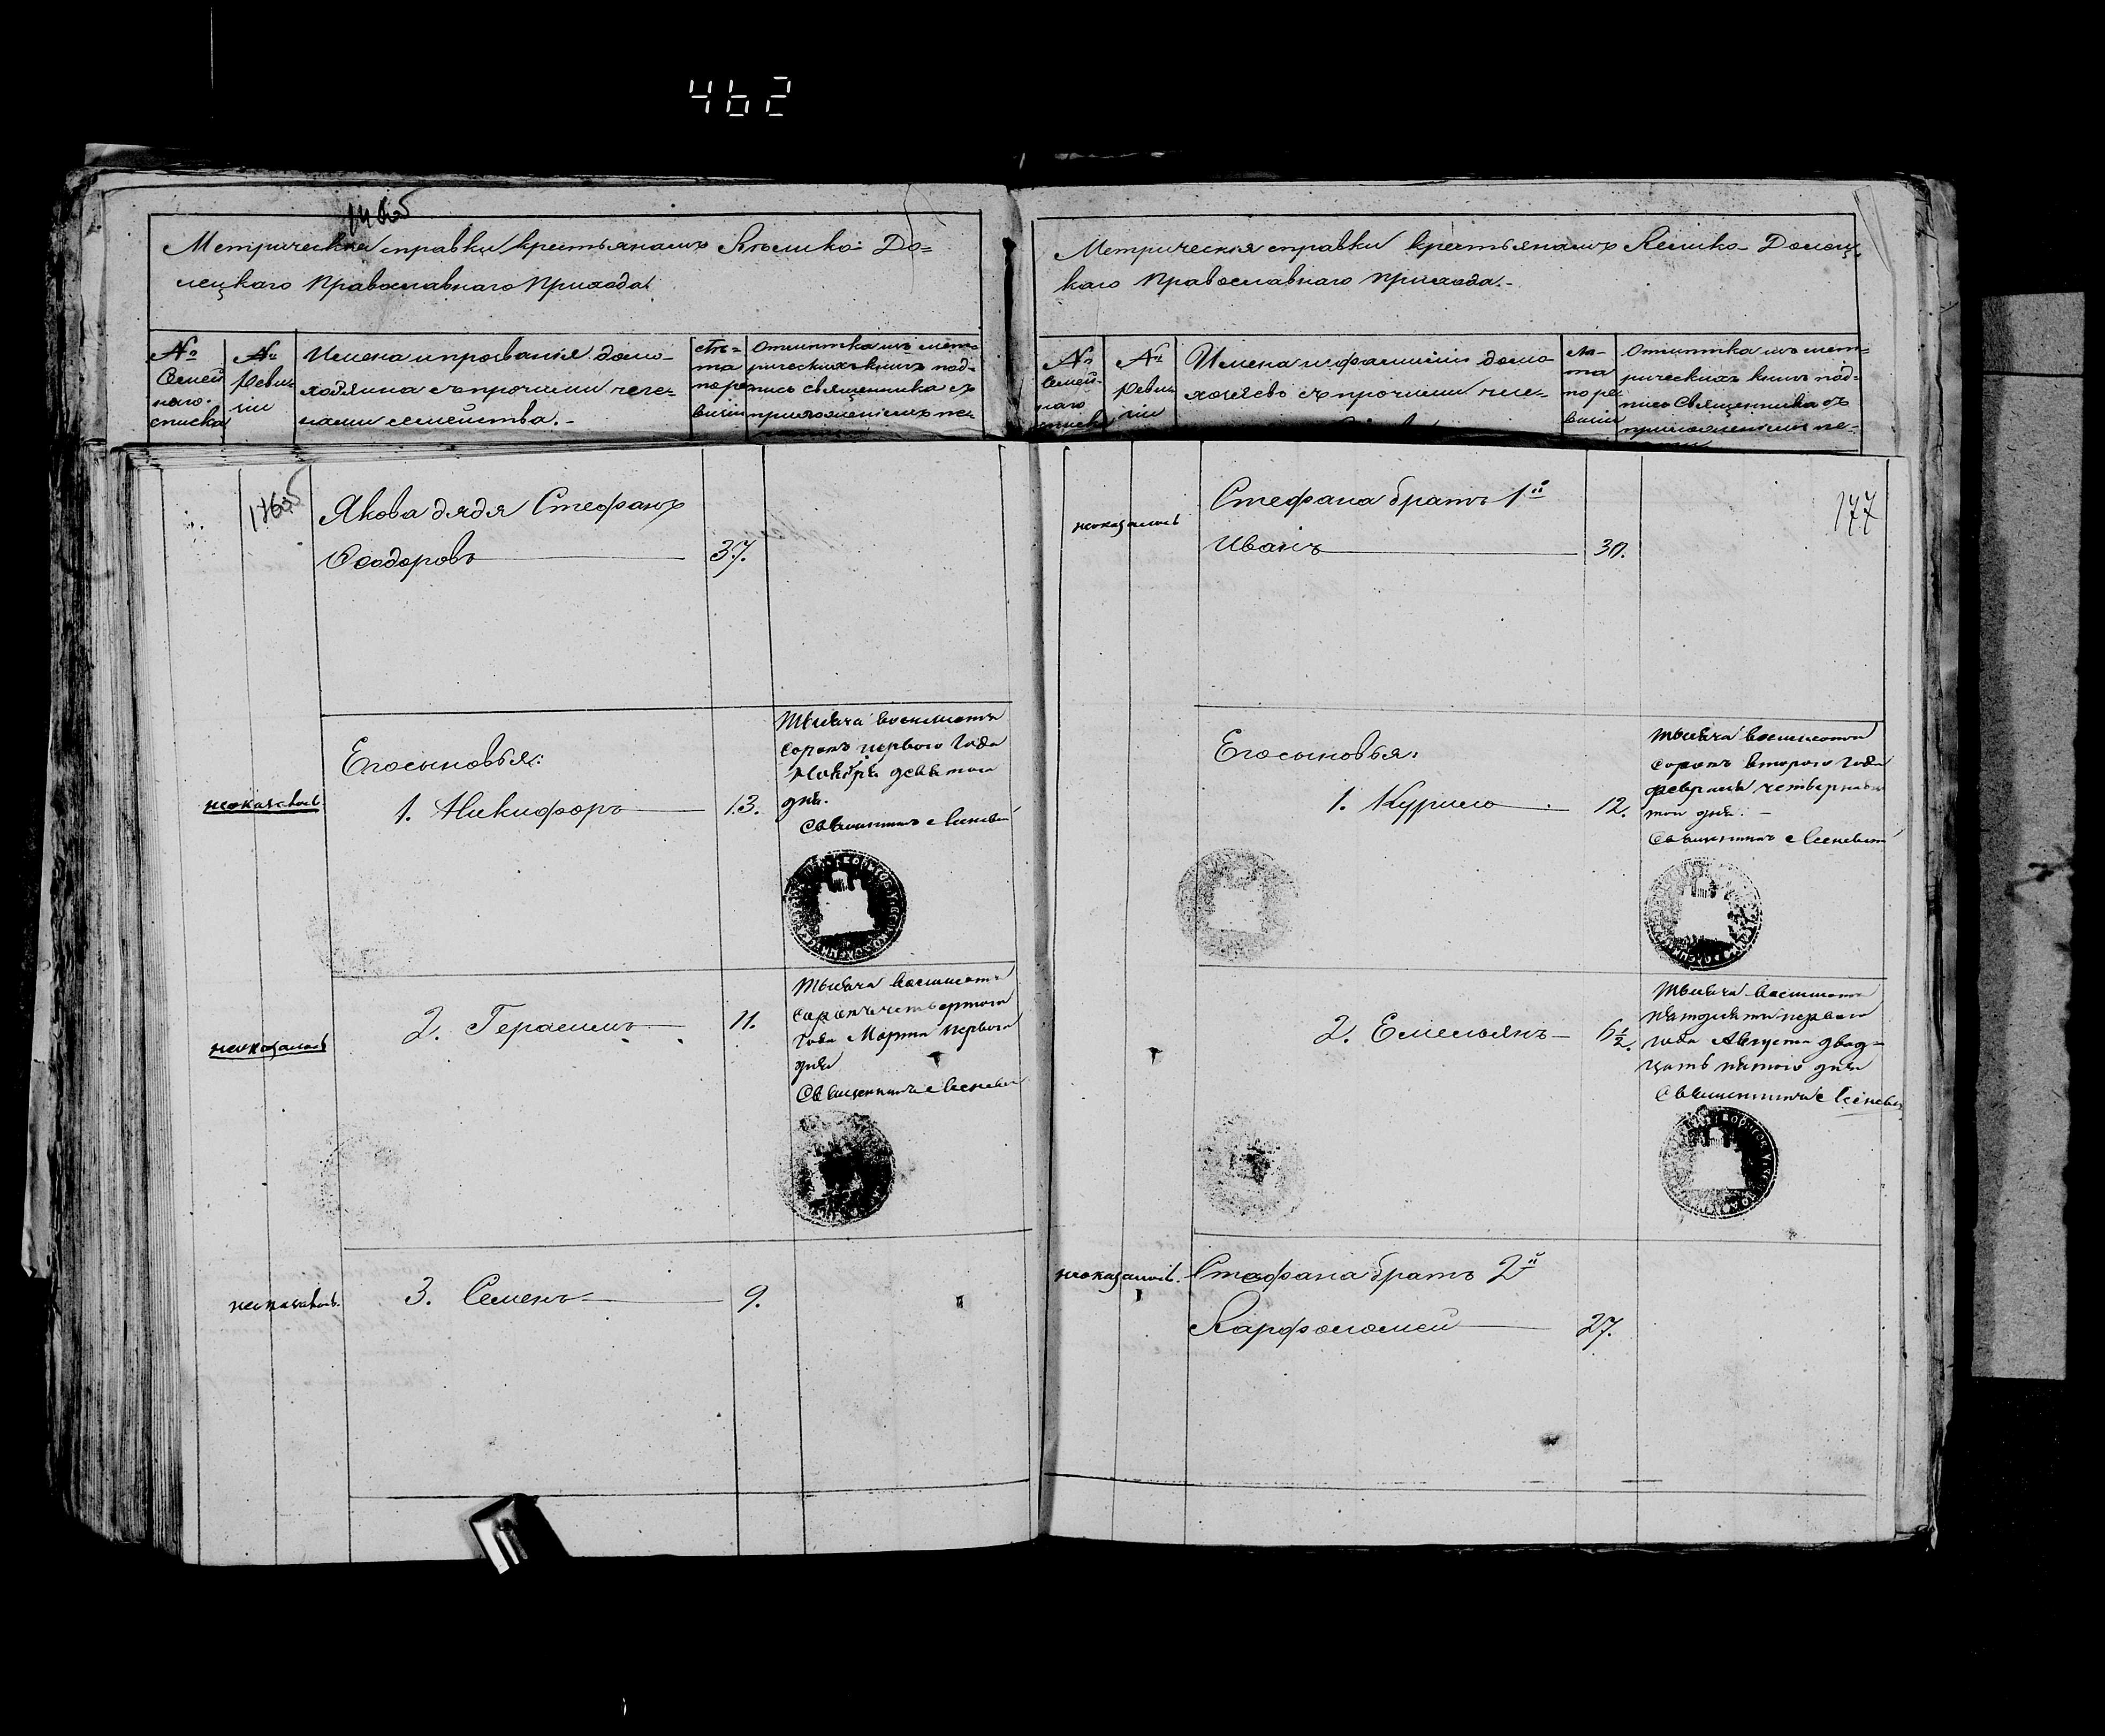 462
1465
Метрическія справки крестьянамъ Велико-До=
лецкаго Православнаго Прихода.
№ Семей наго. списка
№ Реви зіи
Имена и прозванія домо-
хозяина съ прочими чле-
нами семейства.-
лѣ= та по ре визіи
Отмѣтка изъ мет-
рическихъ книгъ под-
пись священника съ
приложеніемъ пе-
1465
Якова дядя Стефанъ
Ѳеодоровъ 37.
Его сыновья:
неоказалось
1. Никифоръ 13.
Тысяча восемьсотъ
сорокъ перваго года
Ноября девятаго
дня.
Священникъ
неоказалось
2. Герасимъ 11.
Тысяча восемьсотъ
сорокъ четвертаго
года Марта перваго
дня
Священникъ
неоказалось.
3. Семенъ 9.
Метрическія справки крестьянамъ Велико-Долец
каго Православнаго Прихода.-
№ Семей- наго списка
№ Реви зіи
Имена и фамиліи домо
хозяевъ съ прочими чле-
лѣ- та по ре визіи
Отмѣтка изъ мет-
рическихъ книгъ под-
пись Священника съ
приложеніемъ пе-
177
неоказалось
Стефана братъ 1й
Иванъ 30.
Его сыновья:
1. Курило 12.
Тысяча восемьсотъ
сорокъ второго года
февраля четырнадца
таго дня.-
Священникъ
2. Емельянъ 6½.
Тысяча восемьсотъ
пятдесятъ перваго
года Августа двад-
цать пятаго дня
Священникъ
неоказалось.
Стефана братъ 2й
Варфоломей 27.